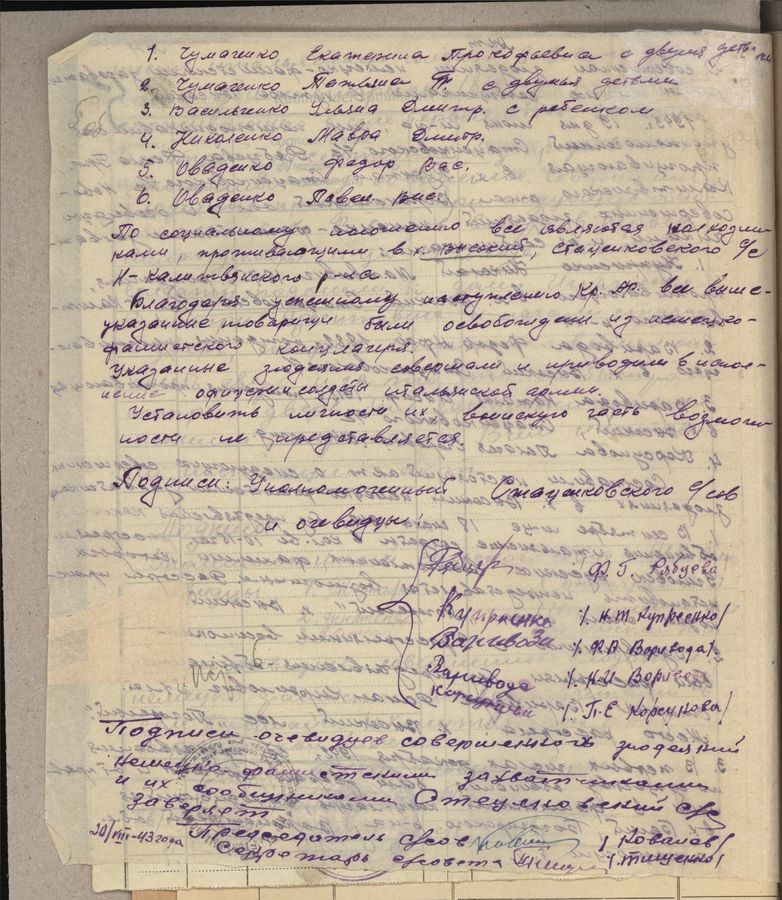 1. Чумаченко Екатерина Прокофьевна с двумя детьми
2. Чумаченко Татьяна П. с двумя детьми
3. Васильченко Ульяна Дмитр. с ребенком
4. Николенко Мавра Дмитр.
5. Оваденко Федор Вас.
6. Оваденко Павел. Вас.
По социальному положению все являются колхозни-
ками, проживающими в х. Высокий, Стаценковского с/с
Н-Калитвянского р-на
Благодаря успешному наступлению Кр. Ар. все выше-
указанные товарищи были освобождены из немецко-
фашистского концлагеря.
Указанные злодеяния совершали и приводили в испол-
нение офицеры и солдаты итальянской армии.
Установить личности их воинскую часть возмож-
ности не представляется.
Подписи: Уполномоченный Стаценковского с/сов
и очевидцы:
Ф. Г. Рябцева
Куприенко /Н.Т. Купреенко/
Варивода /Ф.А Воривода/
Варивода /Н.И. Вориво
/П.Е Корсунова/
Подписи очевидцев совершенных злодеяний
немецко-фашистскими захватчиками
и их сообщниками Стеценковский с/с
заверяет
20/VIII-43 года Председатель с/сов /Ковалев/
Секретарь с/совета /Тищенко/